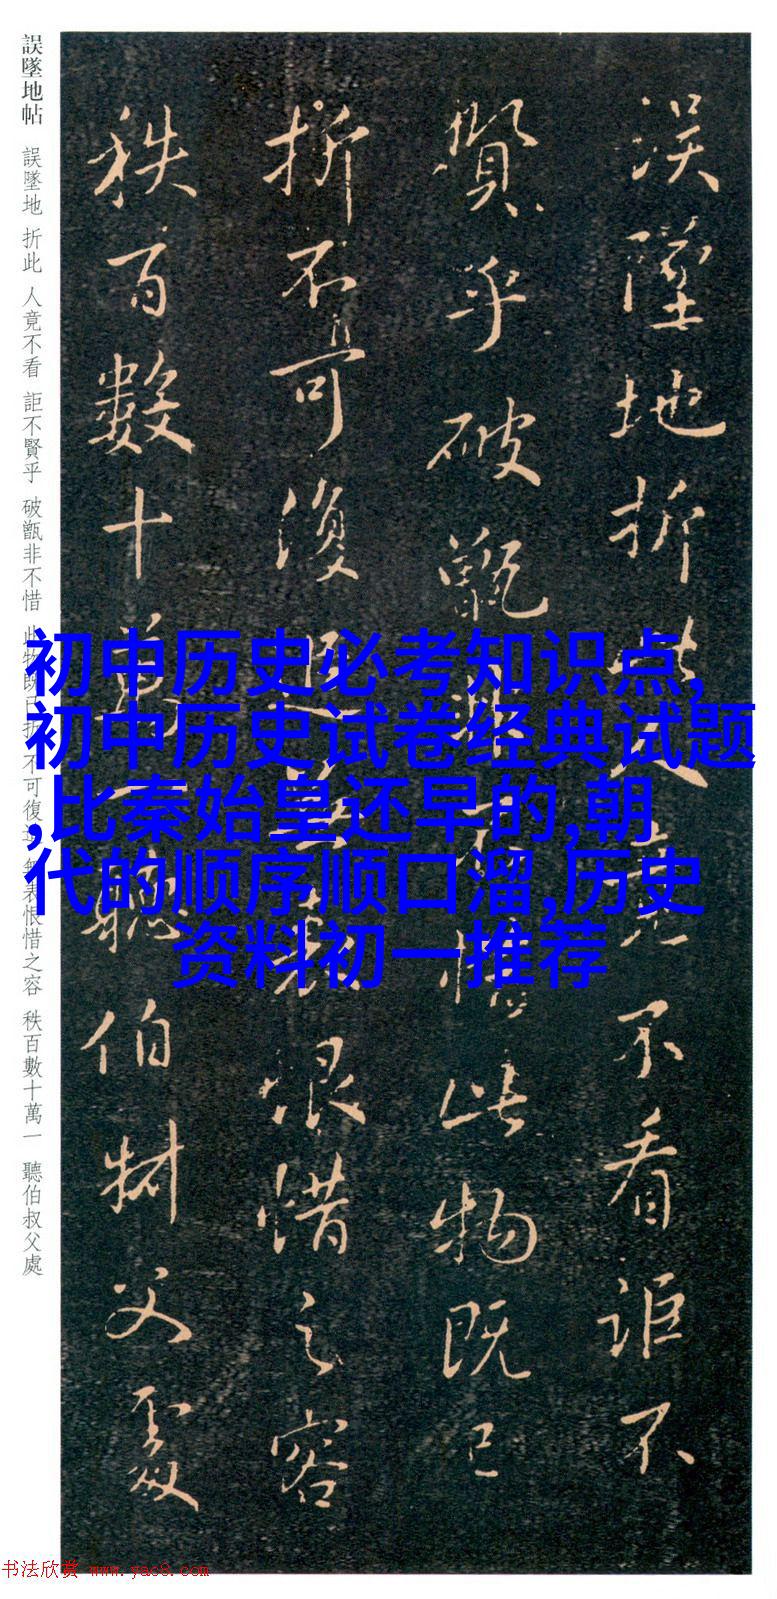 誤墜地帖 誤墜地 折此 人竟不看 詎不賢乎 破甑非不惜 此物既已折 不可復 無表恨惜之容 秩百數十萬一 聽伯叔父處
误墜地折此人竟不看詎不
賢乎破甑非不惜此物既已
折不可復 無表恨惜之容
秩百數十萬一聽伯叔父處
初中历史必考知识点,
初中历史试卷经典试题
,比秦始皇还早的,朝
代的顺序顺口溜,历史
资料初一推荐
书法欣赏 www.yac8.com